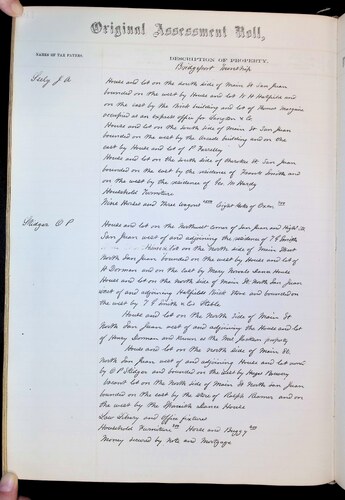 Original Assessment Roll,
NAMES OF TAX PAYERS.
DESCRIPTION OF PROPERTY.
Bridgeport Township
Seely J A
House and lot on the south side of Main St San Juan
bounded on the west by House and lot W H Halfield and
on the east by the Brick building and lot of Thomas
occupied as an express office for & Co
House and lot on the South side of Main St San Juan
bounded on the west by the brick building and on the
east by House and lot of P
House and lot on the South side of Cherokee St San Juan
bounded on the east by the residence of Frank Smith and
on the west by the residence of Geo McHardy
Household Furniture
Three Horses and Three wagons Eight Yoke of Oxen
Stidger O P
House and lot on the Northwest Corner of San Juan and Flight St
San Juan west of and adjoining the residence of T G Smith
House & lot on the North side of Main Street
North San Juan bounded on the west by House and lot of
H Dorman and on the East by Mary Dance House
House and lot on the North side of Main St North San Juan
west of and adjoining Halfields Brick Store and bounded on
the west by T G Smith & Co Stable
House and lot on the North side of Main St
North San Juan west of and adjoining the House and lot
of Henry Dorman and known as the McJackson property
House and lot on the North side of Main St
North San Juan west of and adjoining House and lot owned
by O P Stidger and bounded on the West by
Vacant lot on the North side of Main St North San Juan
bounded on the east by the store of Ralph and on
the west by the Spanish Dance House
Law Library and office fixtures
Household Furniture Horse and Buggy
Money loaned by note and Mortgage